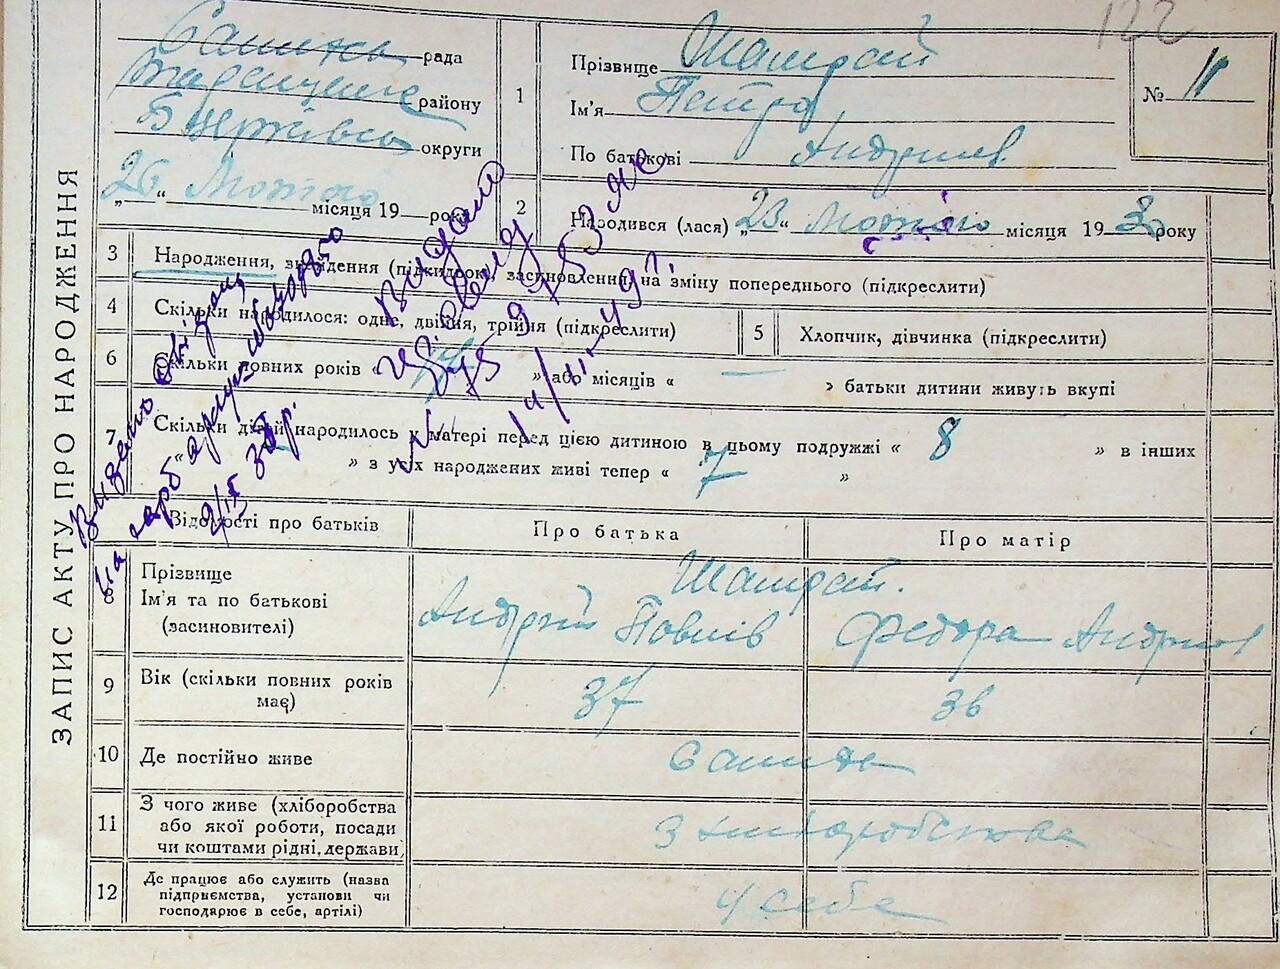 122
рада
Таращанс району
Б Церківс округи
„26“ Лютого місяця 19 року
ЗАПИС АКТУ ПРО НАРОДЖЕННЯ
1 Прізвище Шамрай
Ім'я Петро
По батькові Андріїв
№ 11
2 Народився (лася) „23“ Лютого місяця 1930 року
3 Народження, знайдення (підкидьок), засиновлення, на зміну попереднього (підкреслити)
4 Скільки народилося: одне, двійня, трійня (підкреслити)
5 Хлопчик, дівчинка (підкреслити)
6 Скільки повних років « 17 » або місяців « — » батьки дитини живуть вкупі
7 Скільки дітей народилось у матері перед цією дитиною в цьому подружжі « 8 » в інших
« » з усіх народжених живі тепер « 7 »
Видано
14/II-49
Видано
9/IX 30 р.
Відомості про батьків
Про батька
Про матір
8 Прізвище
Ім'я та по батькові
(засиновителі)
Шамрай.
Андрій Павлів
Федора Андріїв
9 Вік (скільки повних років має)
37
36
10 Де постійно живе
11 З чого живе (хліборобства
або якої роботи, посади
чи коштами рідні, держави)
З хліборобства
12 Де працює або служить (назва
підприємства, установи чи
господарює в себе, артілі)
у себе